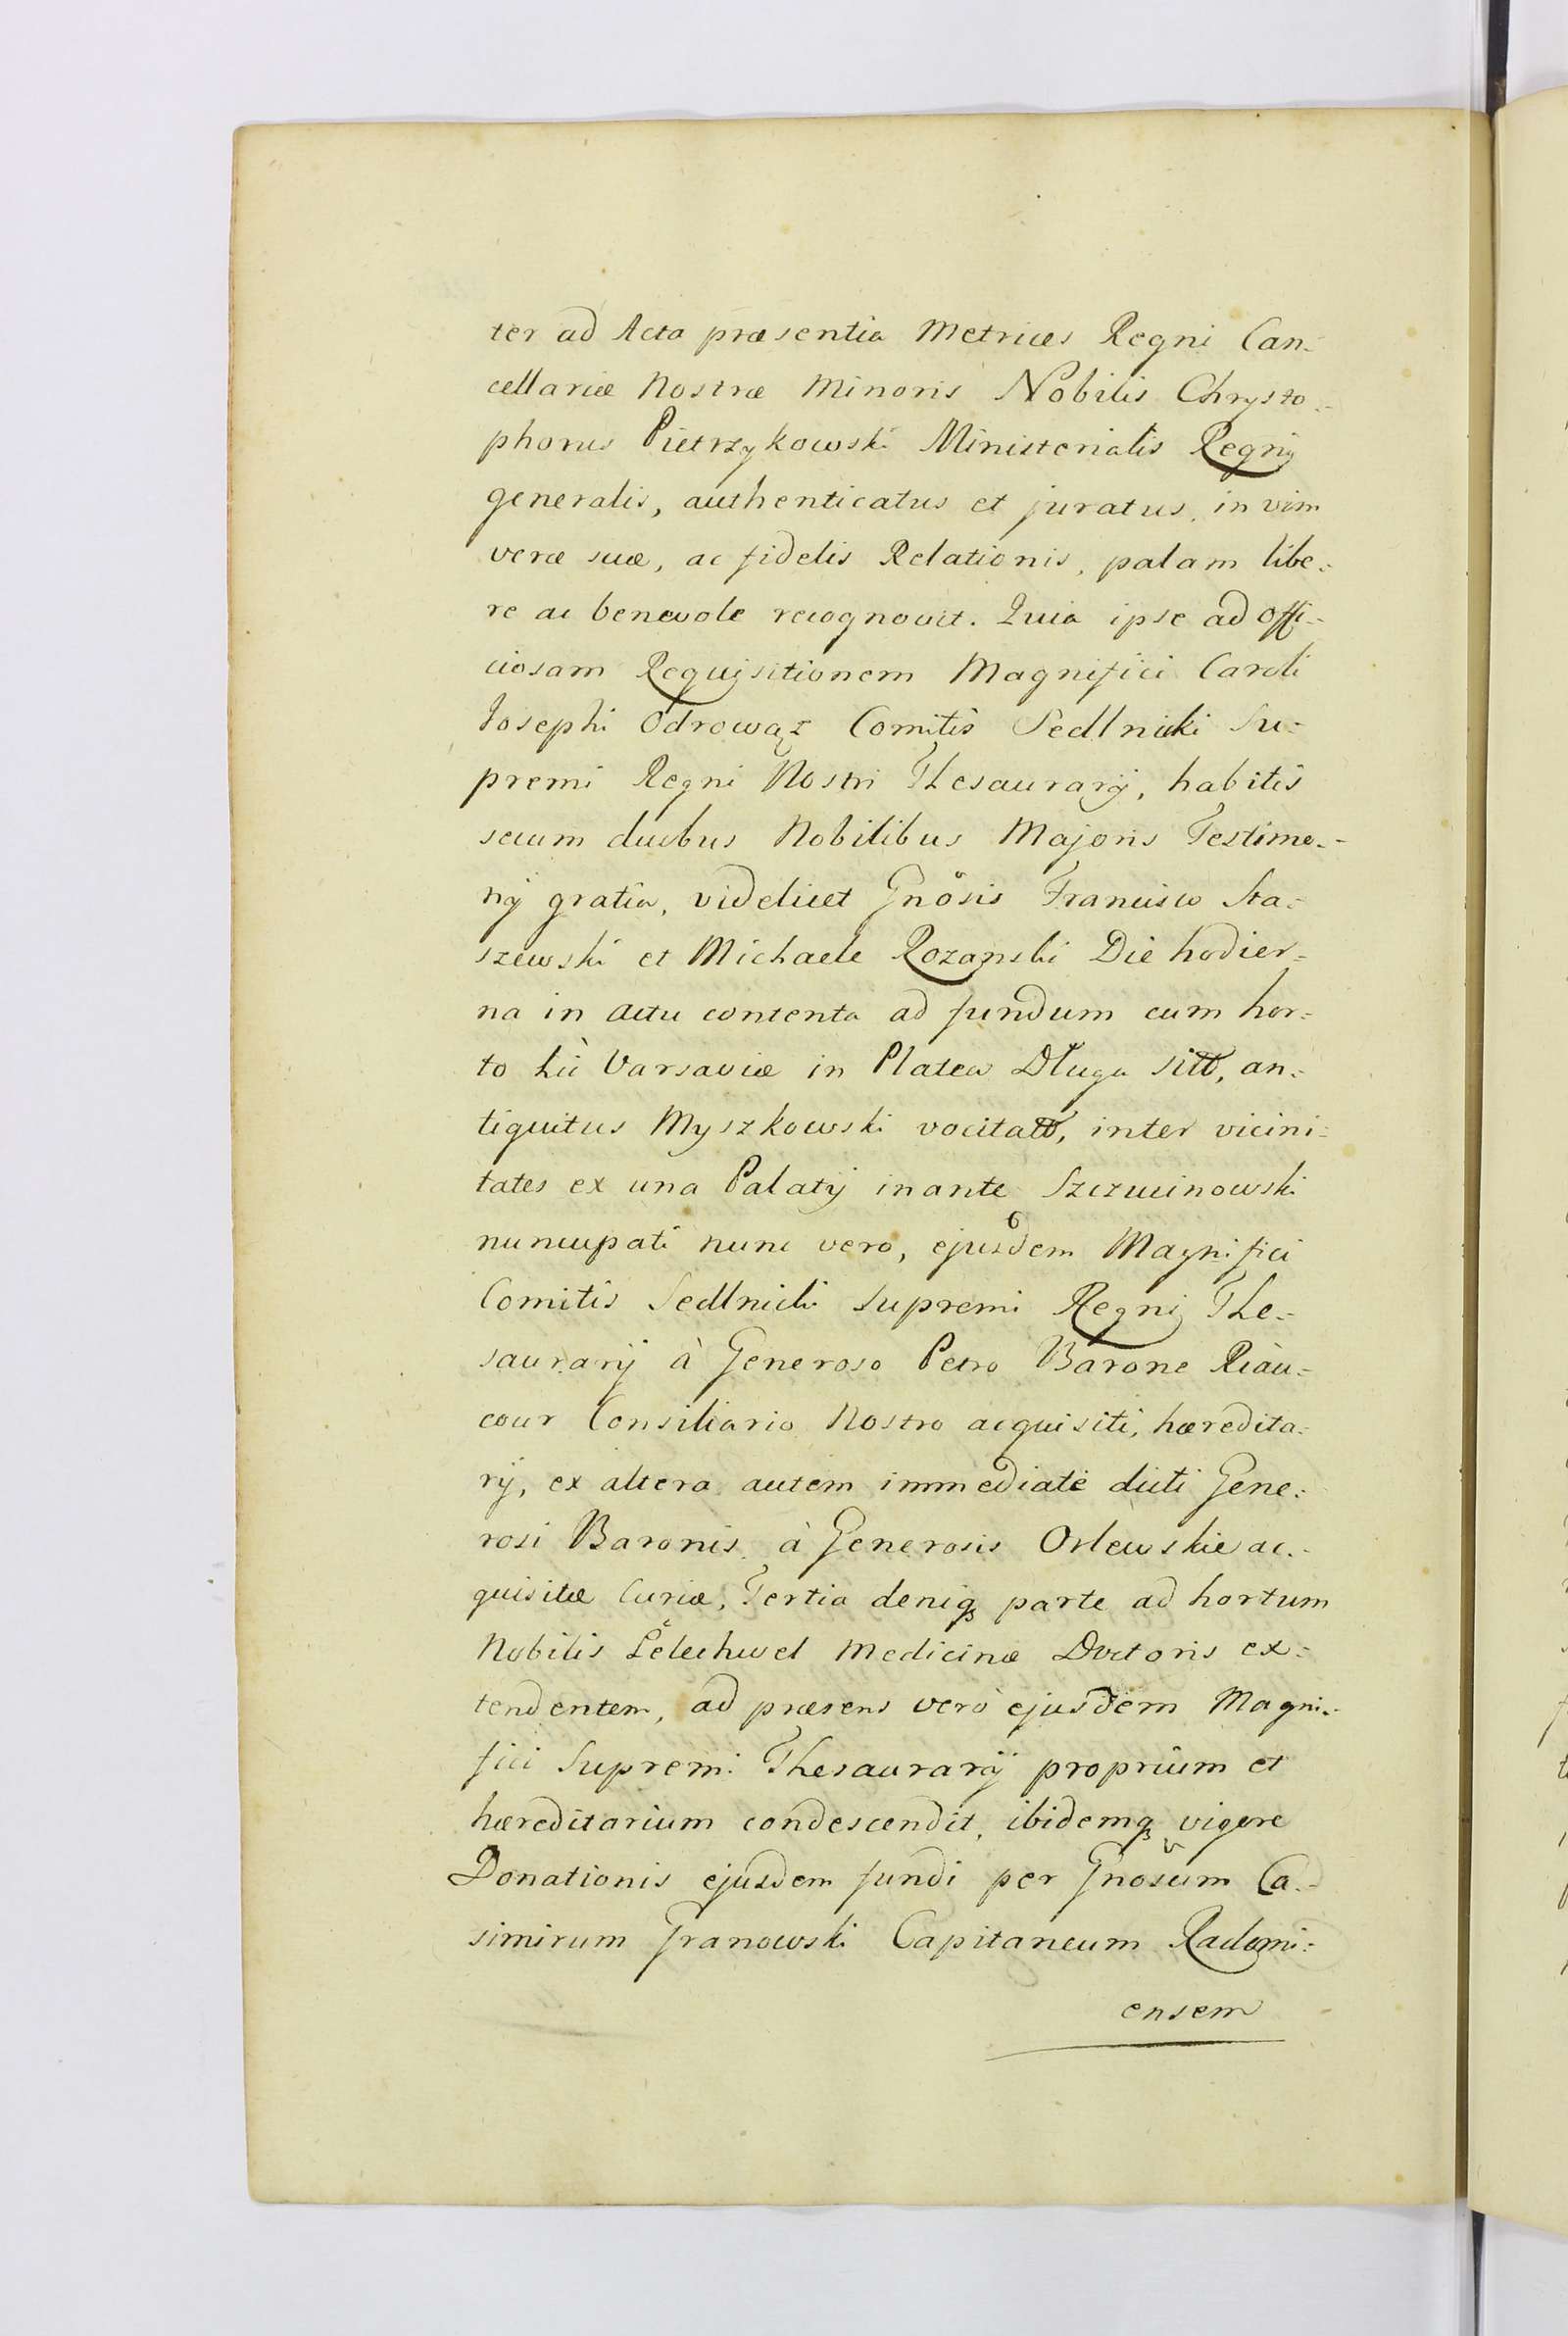 ter ad Acta præsentia Metrices Regni Can-
cellariæ Nostræ Minoris Nobilis Chrysto-
phorus Pietrzykowski Ministerialis Regni
generalis, authenticatus et juratus, in vim
veræ suæ, ac fidelis Relationis, palam libe-
re ac benevole recognovit. Quia ipse ad offi-
ciosam Requisitionem Magnifici Caroli
Josephi Odrowąz Comitis Sedlnicki Su-
premi Regni Nostri Thesaurarij, habitis
secum duobus Nobilibus Majoris Testimo-
nij gratia, videlicet Gnosis Francisco Sta-
szewski et Michaele Rozanski Die hodier-
na in actu contenta ad fundum cum hor-
to hic Varsaviæ in Platea Długa sitt, an-
tiquitus Myszkowski vocitatt, inter vicini-
tates ex una Palatij inante Szczucinowski
nuncupati nunc vero, ejusdem Magnifici
Comitis Sedlnicki Supremi Regni The-
saurarij à Generoso Petro Barone Riau-
cour Consiliario Nostro acquisiti, hæredita-
rij, ex altera autem immediate dicti Gene-
rosi Baronis à Generosis Orlewskie ac-
quisitæ Curiæ, Tertia deniq parte ad hortum
Nobilis Medicinæ Doctoris ex-
tendentem, ad præsens verò ejusdem Magni-
fici Supremi Thesaurarij proprium et
hæreditarium condescendit, ibidemq vigore
Donationis ejusdem fundi per Gnosum Ca-
simirum Granowski Capitaneum Radomi-
ensem